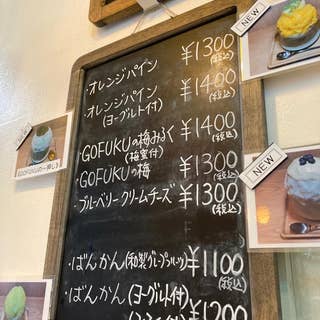 NEW
・オレンジパイン ¥1300
(税込)
・オレンジパイン ¥1400
(ヨーグルト付) (税込)
・GOFUKUの梅みるく ¥1400
(梅蜜付) (税込)
・GOFUKUの梅 ¥1300
(税込)
・ブルーベリークリームチーズ ¥1300
(税込)
GOFUKUの一押し!
NEW
・ばんかん(和製グレープフルーツ) ¥1100
(税込)
・ばんかん(ヨーグルト付) ¥1200